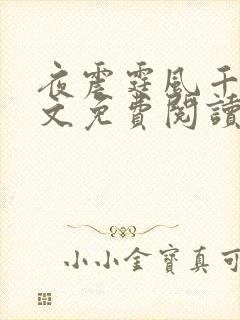 夜震霆風千
文免費閱讀
小小金寶真可